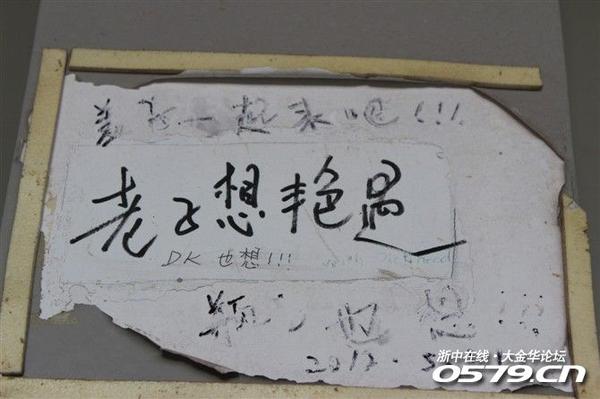 一起来吧!!!
老子想艳遇
DK 也想!!!
也想
浙中在线·大金华论坛
0579.CN